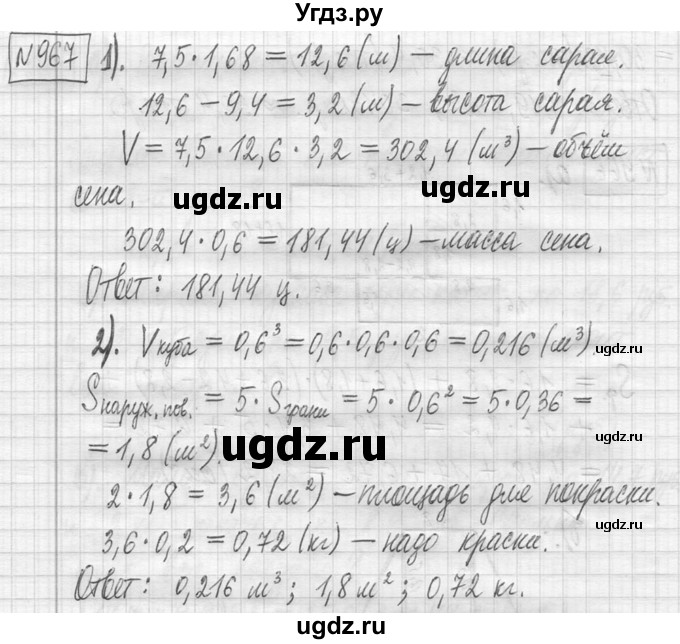 Угдз.ру
№967 1). 7,5·1,68 = 12,6 (м) – длина сарая.
12,6 – 9,4 = 3,2 (м) – высота сарая.
V = 7,5 · 12,6 · 3,2 = 302,4 (м³) – объём
сена.
ugdz.ru ugdz.ru
302,4 · 0,6 = 181,44 (ц) – масса сена.
Ответ: 181,44 ц.
2). Vкуба = 0,6³ = 0,6·0,6·0,6 = 0,216 (м³).
Sнаруж. пов. = 5 · Sграни = 5 · 0,6² = 5·0,36 =
= 1,8 (м²).
ugdz.ru
2 · 1,8 = 3,6 (м²) – площадь для покраски.
ugdz.ru
3,6·0,2 = 0,72 (кг) – надо краски.
Ответ: 0,216 м³; 1,8 м²; 0,72 кг.
ugdz.ru ugdz.ru